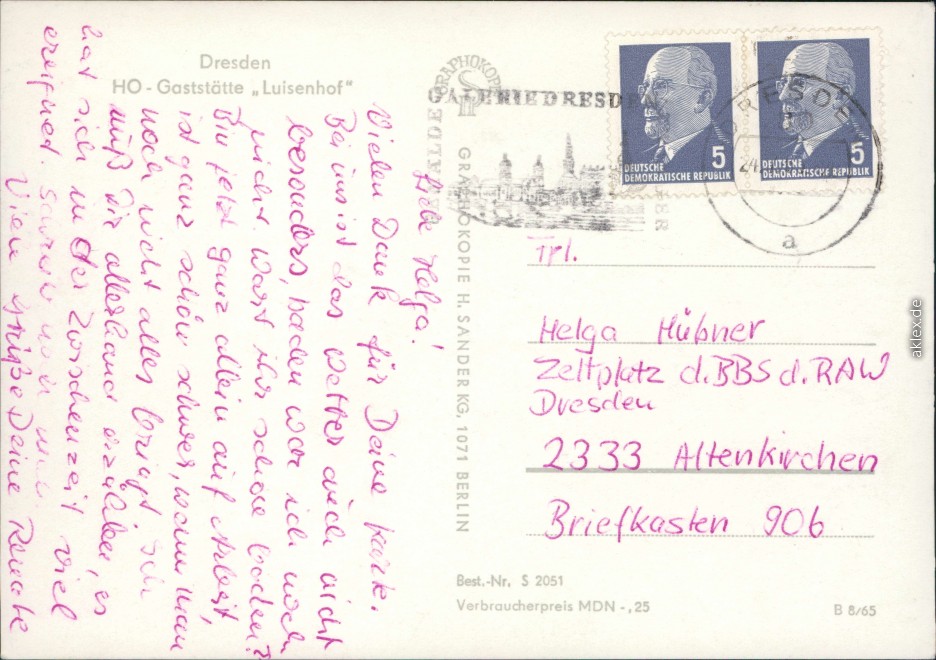 Dresden
HO - Gaststätte „Luisenhof"
Liebe Helga!
Vielen Dank für Deine Karte.
Bei uns ist das Wetter auch nicht
besonders, baden war ich noch
nicht. Wart ihr schon baden?
Bin jetzt ganz allein auf Arbeit,
ist ganz schön schwer, wenn man
noch nicht alles bringt. Ich
muß Dir allerhand erzählen, es
hat sich in der Zwischenzeit viel
ereignet.
Viele Grüße Deine Renate
GRAPHOKOPIE H. SANDER KG, 1071 BERLIN
GALERIE DRESDEN
DRESDE
24.
a
5
DEUTSCHE
DEMOKRATISCHE REPUBLIK
5
DEUTSCHE
DEMOKRATISCHE REPUBLIK
Frl.
Helga Hübner
Zeltplatz d. BBS d. RAW
Dresden
2333 Altenkirchen
Briefkasten 906
Best.-Nr. S 2051
Verbraucherpreis MDN -,25
B 8/65
aklex.de